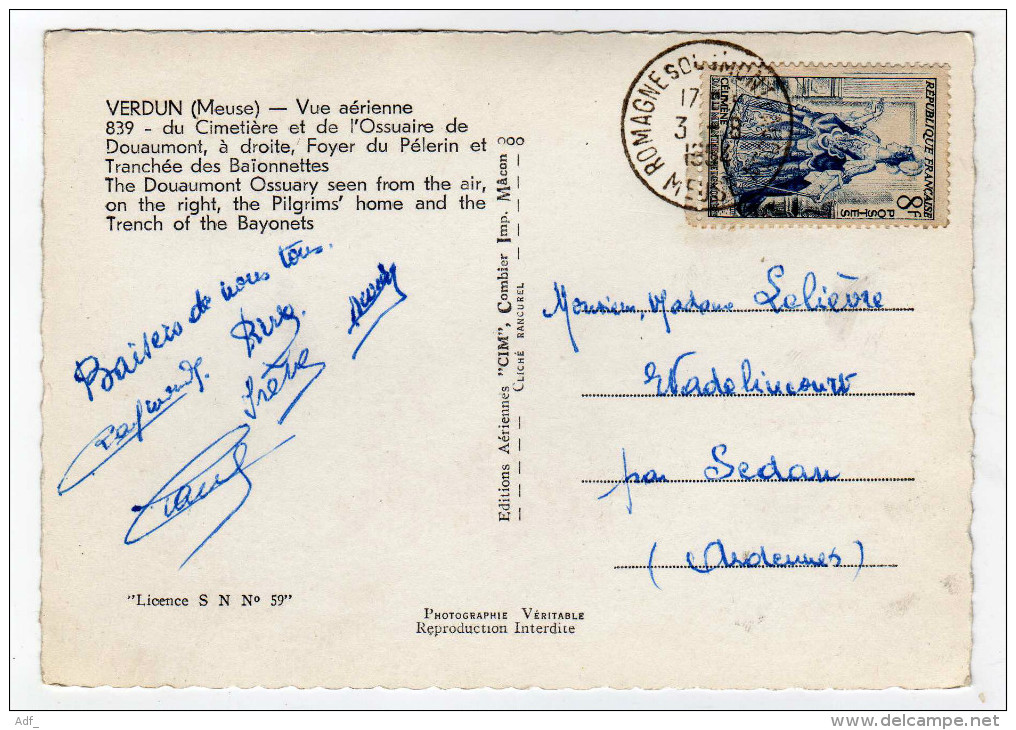 VERDUN (Meuse) — Vue aérienne
839 - du Cimetière et de l'Ossuaire de
Douaumont, à droite, Foyer du Pélerin et
Tranchée des Baïonnettes
The Douaumont Ossuary seen from the air,
on the right, the Pilgrims' home and the
Trench of the Bayonets
Baisers de nous tous.
Raymonde.
Irène
"Licence S N Nº 59"
Editions Aériennes "CIM", Combier Imp. Mâcon
CLICHÉ RANCUREL
PHOTOGRAPHIE VÉRITABLE
Reproduction Interdite
ROMAGNE SOUS MONT
17
3
8
REPUBLIQUE FRANÇAISE
POSTES
8F
CELIMENE
Monsieur, Madame Lelièvre
Wadelincourt
par Sedan
(Ardennes)
Adf_
delcampe.net